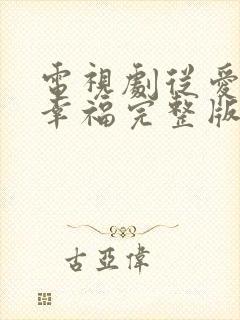 電視劇從愛
幸福完整版
古亞偉